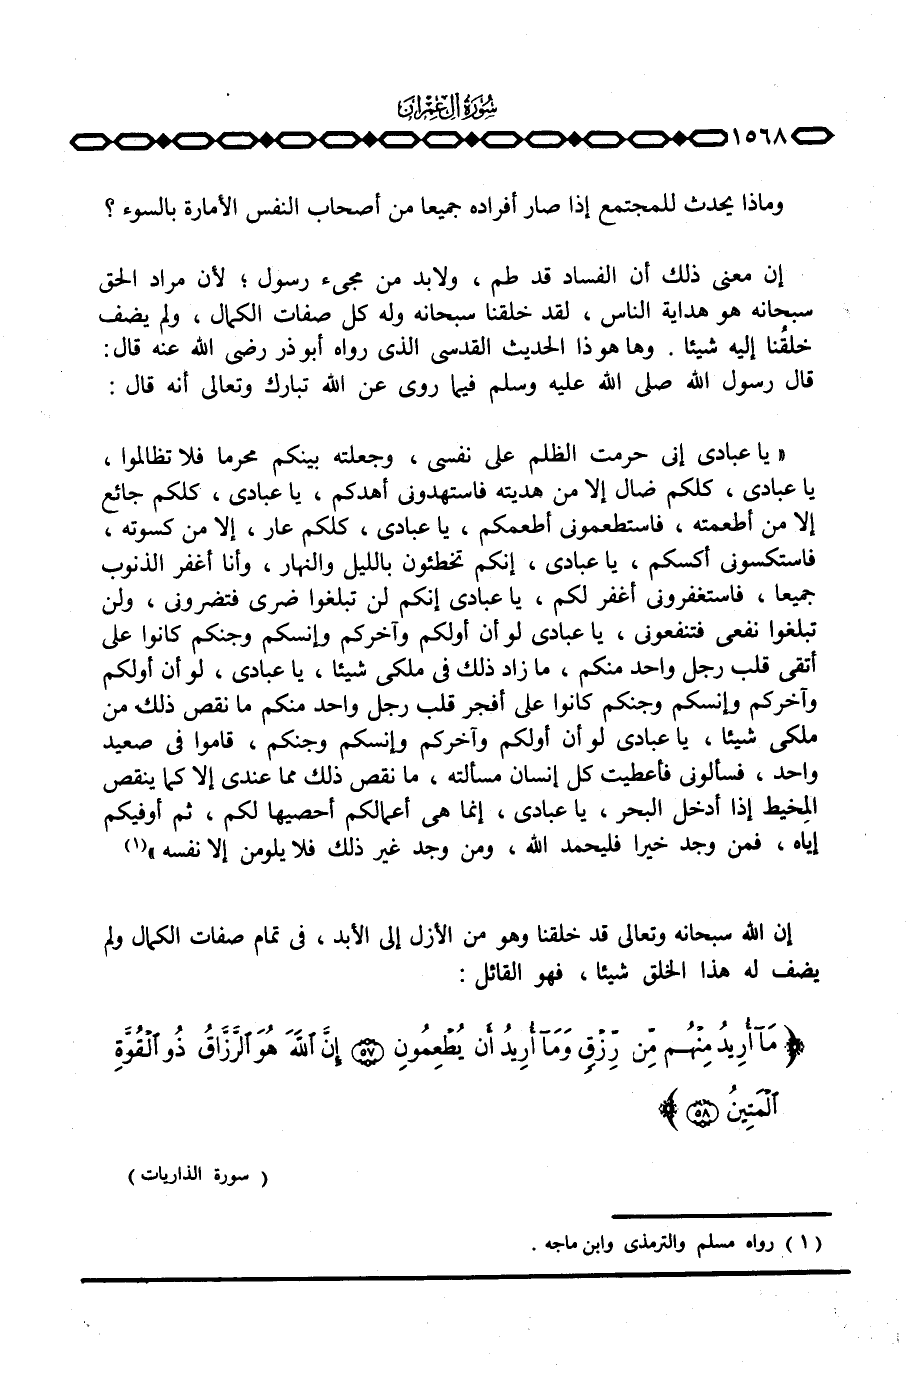 سُورَةُ آلِ عِمْرَانَ
١٥٦٨
وماذا يحدث للمجتمع إذا صار أفراده جميعا من أصحاب النفس الأمارة بالسوء ؟
إن معنى ذلك أن الفساد قد طم ، ولابد من مجىء رسول ؛ لأن مراد الحق
سبحانه هو هداية الناس ، لقد خلقنا سبحانه وله كل صفات الكمال ، ولم يضف
خلقُنا إليه شيئا . وها هو ذا الحديث القدسى الذى رواه أبو ذر رضى الله عنه قال :
قال رسول الله صلى الله عليه وسلم فيما روى عن الله تبارك وتعالى أنه قال :
« يا عبادى إنى حرمت الظلم على نفسى ، وجعلته بينكم محرما فلا تظالموا ،
يا عبادى ، كلكم ضال إلا من هديته فاستهدونى أهدكم ، يا عبادى ، كلكم جائع
إلا من أطعمته ، فاستطعمونى أطعمكم ، يا عبادى ، كلكم عار ، إلا من كسوته ،
فاستكسونى أكسكم ، يا عبادى ، إنكم تخطئون بالليل والنهار ، وأنا أغفر الذنوب
جميعا ، فاستغفرونى أغفر لكم ، يا عبادى إنكم لن تبلغوا ضرى فتضرونى ، ولن
تبلغوا نفعى فتنفعونى ، يا عبادى لو أن أولكم وآخركم وإنسكم وجنكم كانوا على
أتقى قلب رجل واحد منكم ، ما زاد ذلك فى ملكى شيئا ، يا عبادى ، لو أن أولكم
وآخركم وإنسكم وجنكم كانوا على أفجر قلب رجل واحد منكم ما نقص ذلك من
ملكى شيئا ، يا عبادى لو أن أولكم وآخركم وإنسكم وجنكم ، قاموا فى صعيد
واحد ، فسألونى فأعطيت كل إنسان مسألته ، ما نقص ذلك مما عندى إلا كما ينقص
المِخيط إذا أدخل البحر ، يا عبادى ، إنما هى أعمالكم أحصيها لكم ، ثم أوفيكم
إياه ، فمن وجد خيرا فليحمد الله ، ومن وجد غير ذلك فلا يلومن إلا نفسه »(١)
إن الله سبحانه وتعالى قد خلقنا وهو من الأزل إلى الأبد ، فى تمام صفات الكمال ولم
يضف له هذا الخلق شيئا ، فهو القائل :
﴿ مَآ أُرِيدُ مِنْهُم مِّن رِّزْقٍ وَمَآ أُرِيدُ أَن يُطْعِمُونِ ٥٧ إِنَّ ٱللَّهَ هُوَ ٱلرَّزَّاقُ ذُو ٱلْقُوَّةِ
ٱلْمَتِينُ ٥٨ ﴾
( سورة الذاريات )
( ١ ) رواه مسلم والترمذى وابن ماجه .